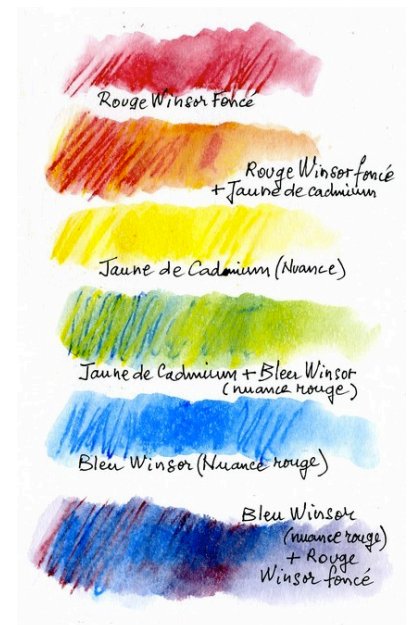 Rouge Winsor Foncé
Rouge Winsor foncé
+ Jaune de cadmium
Jaune de Cadmium (Nuance)
Jaune de Cadmium + Bleu Winsor
(nuance rouge)
Bleu Winsor (Nuance rouge)
Bleu Winsor
(nuance rouge)
+ Rouge
Winsor foncé